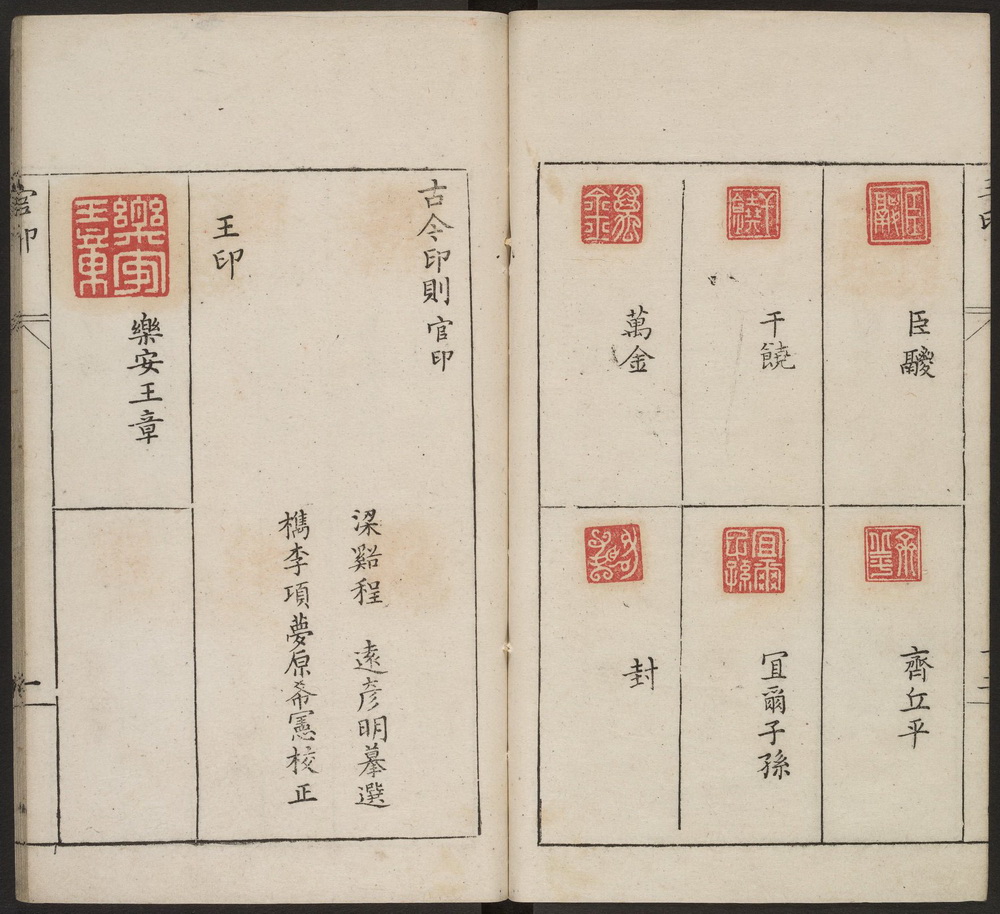 臣䮗
齊丘平
干饒
宜爾子孫
萬金
封
古今印則 官印
梁谿程 遠彥明摹選
檇李項夢原希憲校正
王印
樂安王章
樂安王章
官印
一